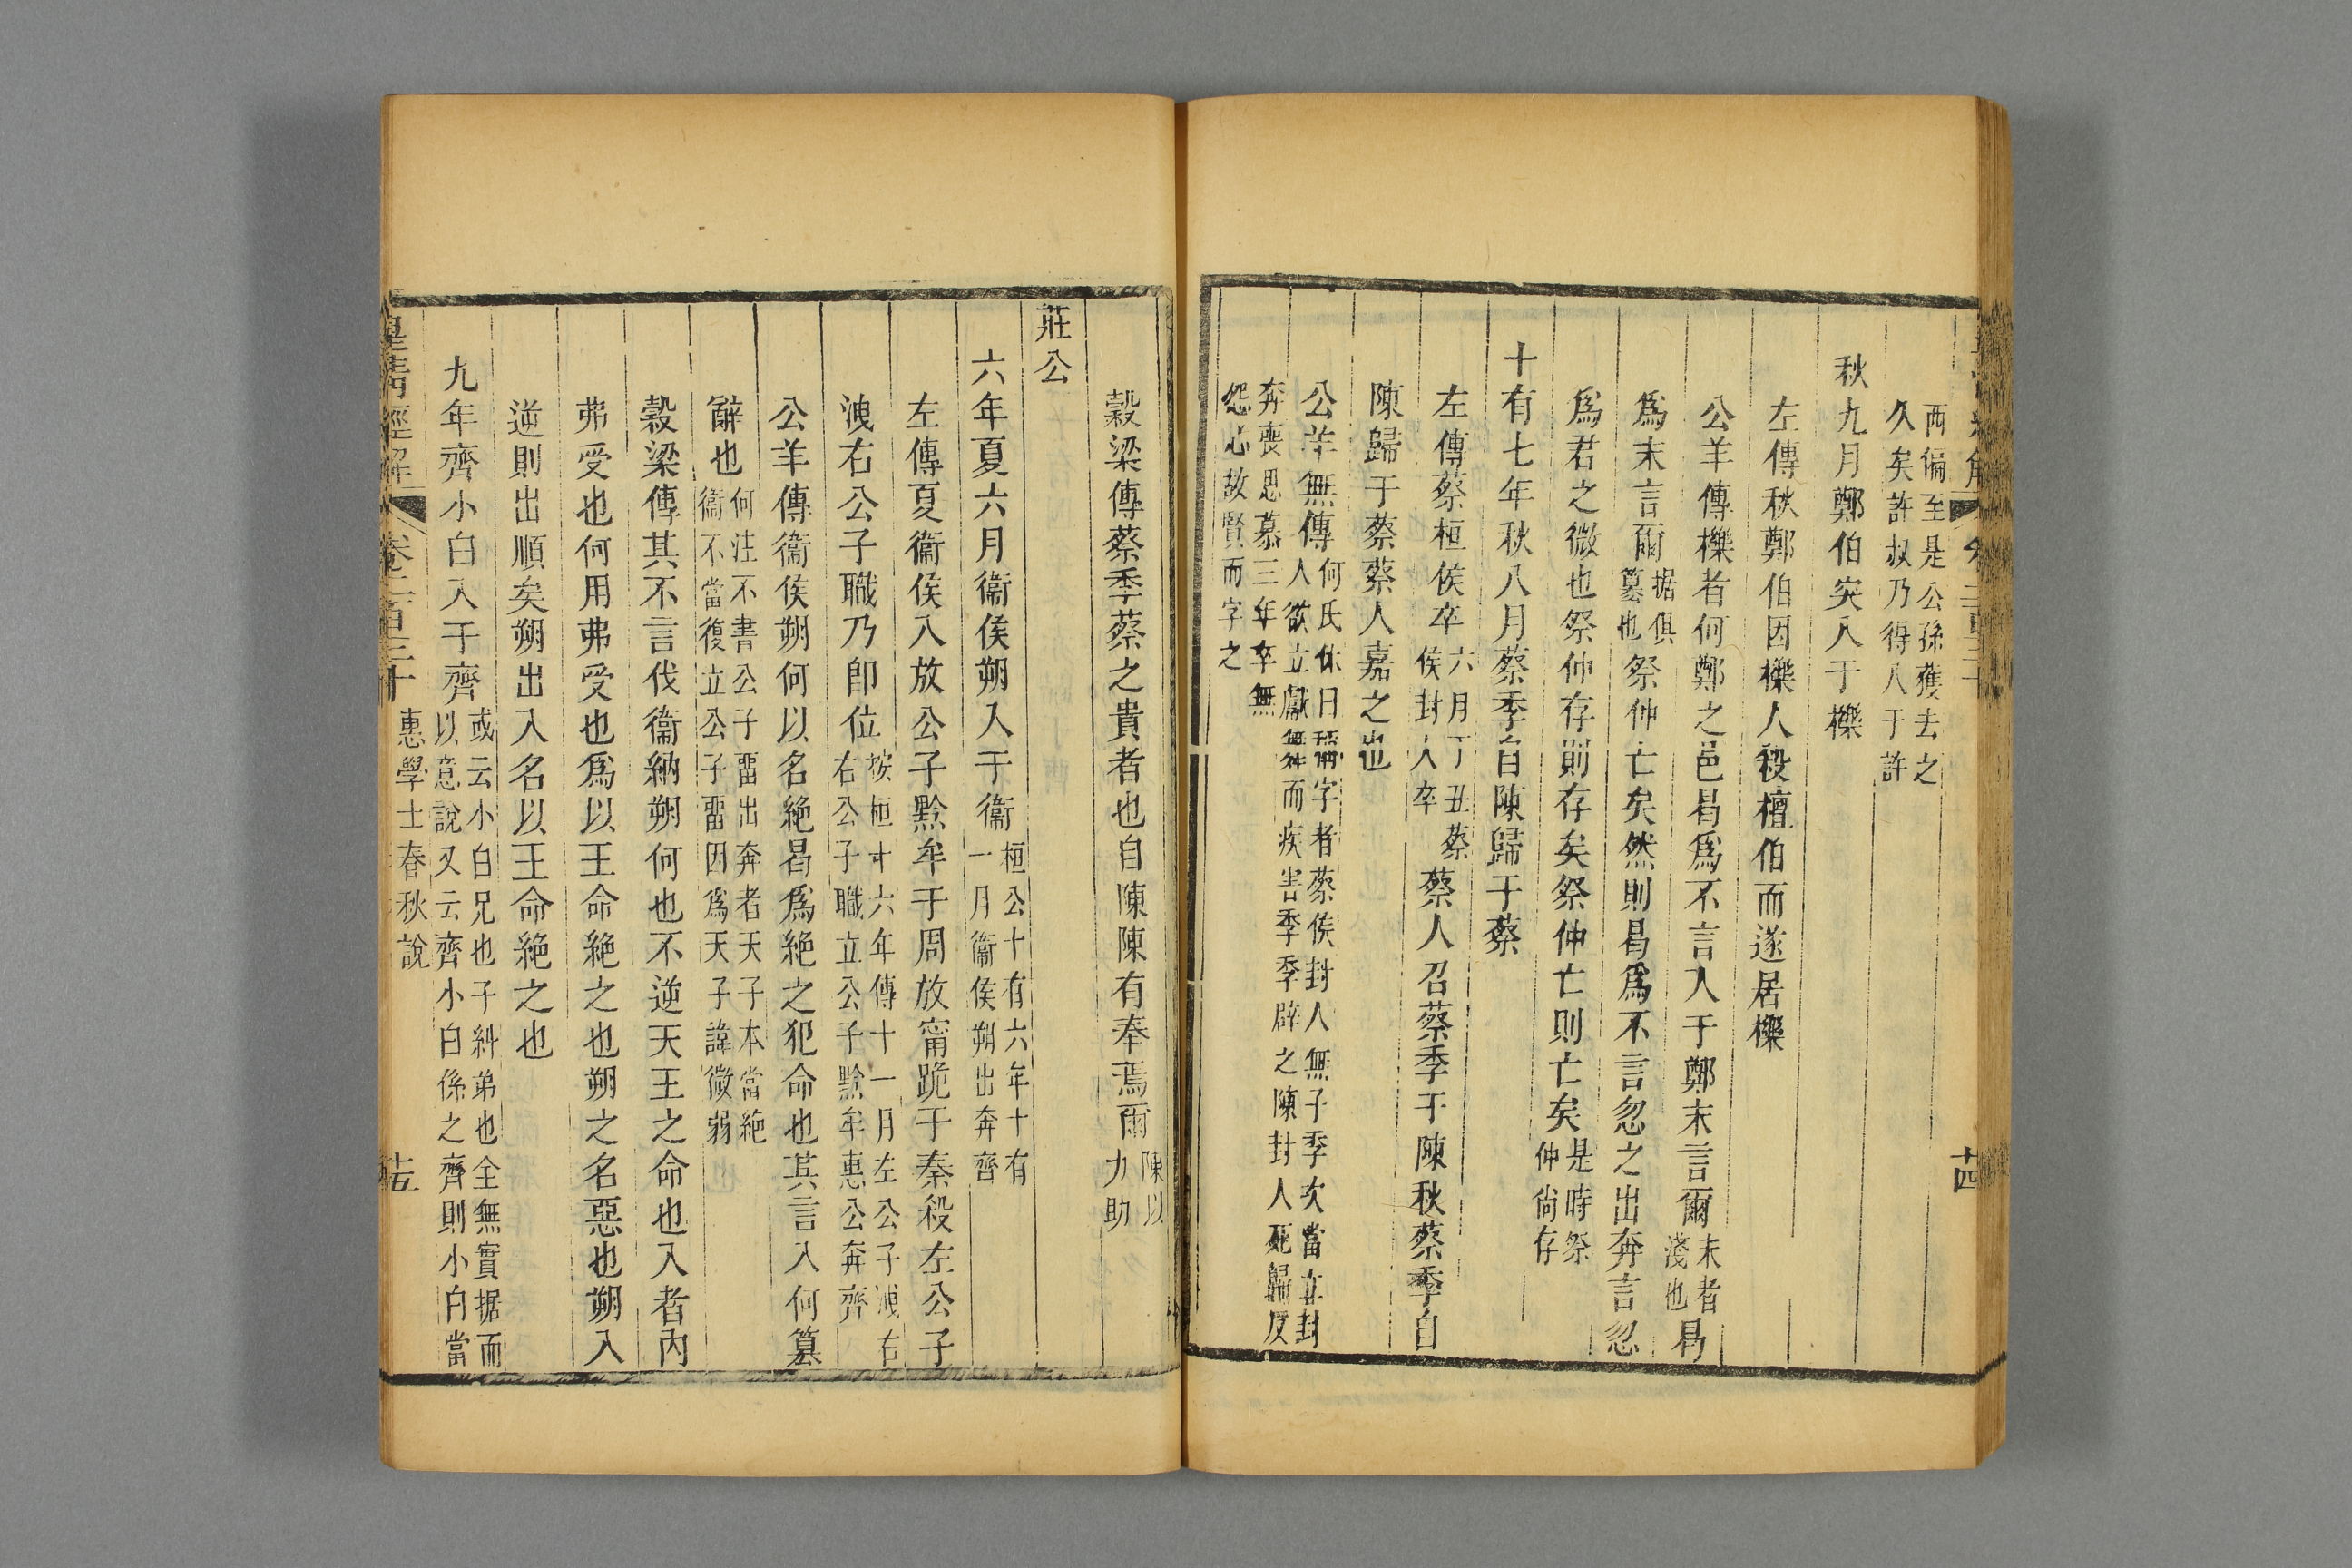 西偏至是公孫獲去之
久矣許叔乃得入于許
秋九月鄭伯突入于櫟
左傳秋鄭伯因櫟人殺檀伯而遂居櫟
公羊傳櫟者何鄭之邑曷爲不言入于鄭末言爾末者淺也曷
爲末言爾据俱篡也祭仲亡矣然則曷爲不言忽之出奔言忽
爲君之微也祭仲存則存矣祭仲亡則亡矣是時祭仲尙存
十有七年秋八月蔡季自陳歸于蔡
左傳蔡桓侯卒六月丁丑蔡侯封人卒蔡人召蔡季于陳秋蔡季自
陳歸于蔡蔡人嘉之也
公羊無傳何氏休曰稱字者蔡侯封人無子季次當立封
人欲立獻舞而疾害季季辟之陳封人死歸反
奔喪思慕三年卒無
怨心故賢而字之
十四
穀梁傳蔡季蔡之貴者也自陳陳有奉焉爾陳以力助
莊公
六年夏六月衞侯朔入于衞桓公十有六年十有一月衞侯朔出奔齊
左傳夏衞侯入放公子黔牟于周放甯跪于秦殺左公子
洩右公子職乃卽位按桓十六年傳十一月左公子洩右
右公子職立公子黔牟惠公奔齊
公羊傳衞侯朔何以名絶曷爲絶之犯命也其言入何篡
辭也何注不書公子畱出奔者天子本當絶
衞不當復立公子畱因爲天子諱微弱
穀梁傳其不言伐衞納朔何也不逆天王之命也入者內
弗受也何用弗受也爲以王命絶之也朔之名惡也朔入
逆則出順矣朔出入名以王命絶之也
九年齊小白入于齊或云小白兄也子糾弟也全無實据而
以意說又云齊小白係之齊則小白當
皇淸經解 卷二百三十 惠學士春秋說 十五